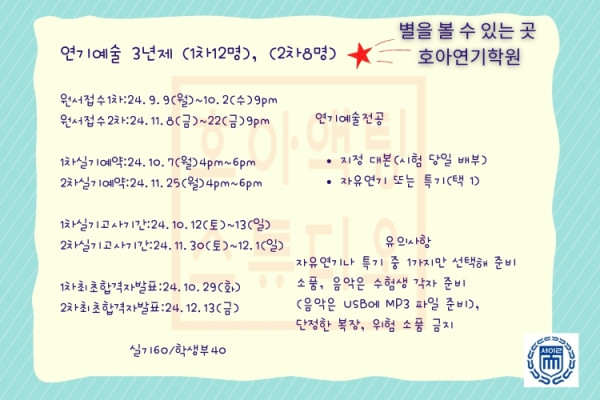 별을 볼 수 있는 곳
호아연기학원
연기예술 3년제 (1차12명), (2차8명)
원서접수1차:24.9.9(월)~10.2(수)9pm
원서접수2차:24.11.8(금)~22(금)9pm
1차실기예약:24.10.7(월)4pm~6pm
2차실기예약:24.11.25(월)4pm~6pm
1차실기고사기간:24.10.12(토)~13(일)
2차실기고사기간:24.11.30(토)~12.1(일)
1차최초합격자발표:24.10.29(화)
2차최초합격자발표:24.12.13(금)
실기60/학생부40
연기예술전공
• 지정 대본(시험 당일 배부)
• 자유연기 또는 특기(택 1)
유의사항
자유연기나 특기 중 1가지만 선택해 준비
소품, 음악은 수험생 각자 준비
(음악은 USB에 MP3 파일 준비),
단정한 복장, 위험 소품 금지
호아액팅
스튜디오